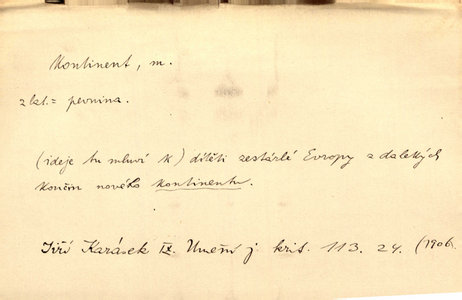 Kontinent, m.
z lat. = pevnina.
(ideje tu mluví k) dítěti zestárlé Evropy z dalekých
končin nového kontinentu.
Jiří Karásek IX. Umění j. krit. 113. 24. (1906.